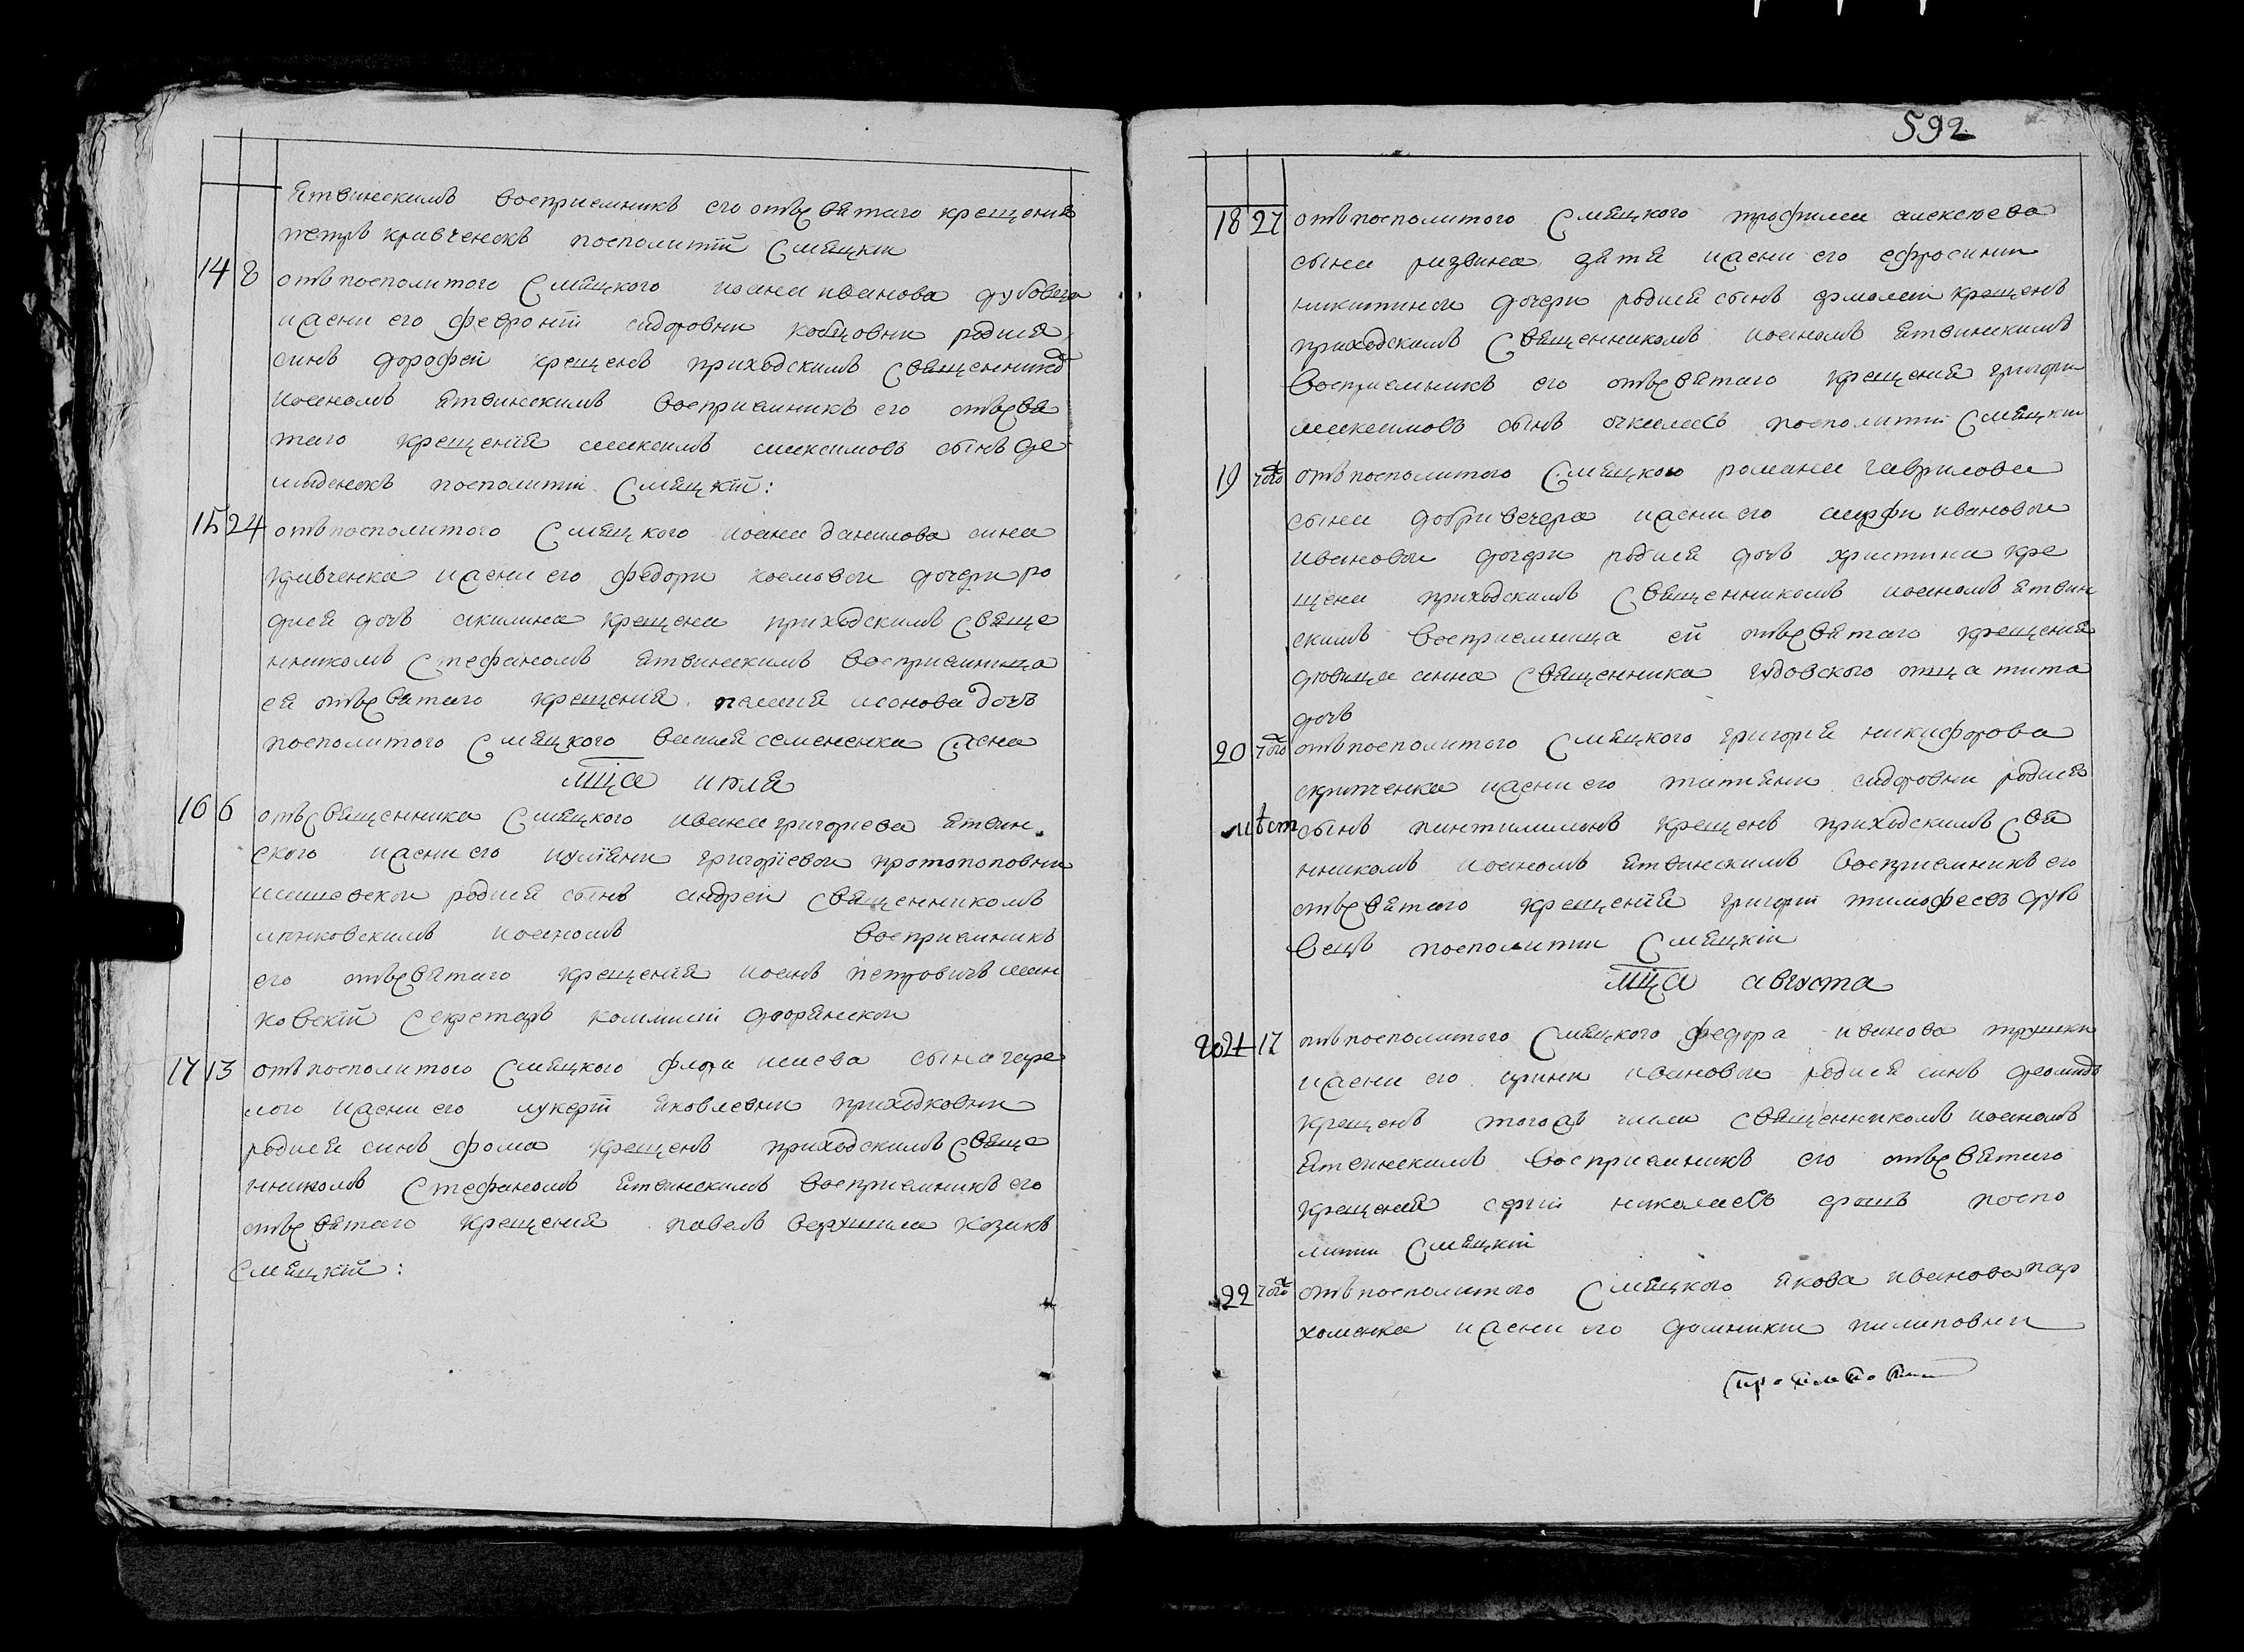 Ятвинскимъ восприемникъ его отъ святаго крещения
петръ кравченокъ посполитїй Смяцкїи
14 8 отъ посполитого Смяцкого иоана иванова дубовца
и жени его февронїй сидоровни кобцовни родися
синъ дорофей крещенъ приходскимъ священнико
иоаномъ Ятвинскимъ восприемникъ его отъ свя
таго крещения максимъ максимовъ сынъ де
миденокъ посполитїи Смяцкїй:
15 24 отъ посполитого Смяцкого иоана данилова сина
кривченка и жени его федори космовои дочери ро
дися дочъ акилина крещена приходскимъ свяще
нникомъ Стефаномъ Ятвинскимъ восприемница
ея отъ святаго крещения дочъ
посполитого Смяцкого василя семененка жена
мца июля
16 6 отъ священника Смяцкого ивана григориева Ятвин
ского и жени его иулїяни григорїевои протопоповни
родися сынъ андреи священникомъ
иоаномъ восприемникъ
его отъ святаго крещения иоанъ петровичъ ман
ковскїй секретаръ коммисїи дворянскои
17 13 отъ посполитого Смяцкого флора исаева сына горе
лого и жени его лукерїй яковлевни приходковни
родися синъ фома крещенъ приходскимъ свяще
нникомъ Стефаномъ Ятвинскимъ восприемникъ его
отъ святаго крещения павелъ вершила козакъ
Смяцкїй:
592
18 27 отъ посполитого Смяцкого трофима алексеева
сына ризвина зятя и жени его ефросинии
никитинои дочери родися сынъ ермолаи крещенъ
приходскимъ священникомъ иоаномъ Ятвинскимъ
восприемникъ его отъ святаго крещения григори
максимовъ сынъ посполитїи Смяцкїи
19 того отъ посполитого Смяцкого романа гаврилова
сына добривечера и жени его марфи ивановои
ивановои дочери родися дочъ христина кре
щена приходскимъ священникомъ иоаномъ Ятвин
скимъ восприемница ей отъ святаго крещения
дювица анна священника отца тита
дочъ
20 того отъ посполитого Смяцкого григория никифорова
скрипченка и жени его татияни сидоровни родися
сынъ пантилимонъ крещенъ приходскимъ свя
нникомъ иоаномъ Ятвинскимъ восприемникъ его
отъ святаго крещения григорїи тимофеевъ дубо
вецъ посполитїи Смяцкїи
мца августа
21 17 отъ посполитого Смяцкого федора иванова трушки
и жени его ирини ивановои родися синъ
крещенъ тогожъ числа священникомъ иоаномъ
Ятвинскимъ восприемникъ его отъ святаго
крещения сергїи николаевъ посло
литїи Смяцкїй
22 того отъ посполитого Смяцкого якова иванова пар
хоменка и жени его домникїи пилиповни